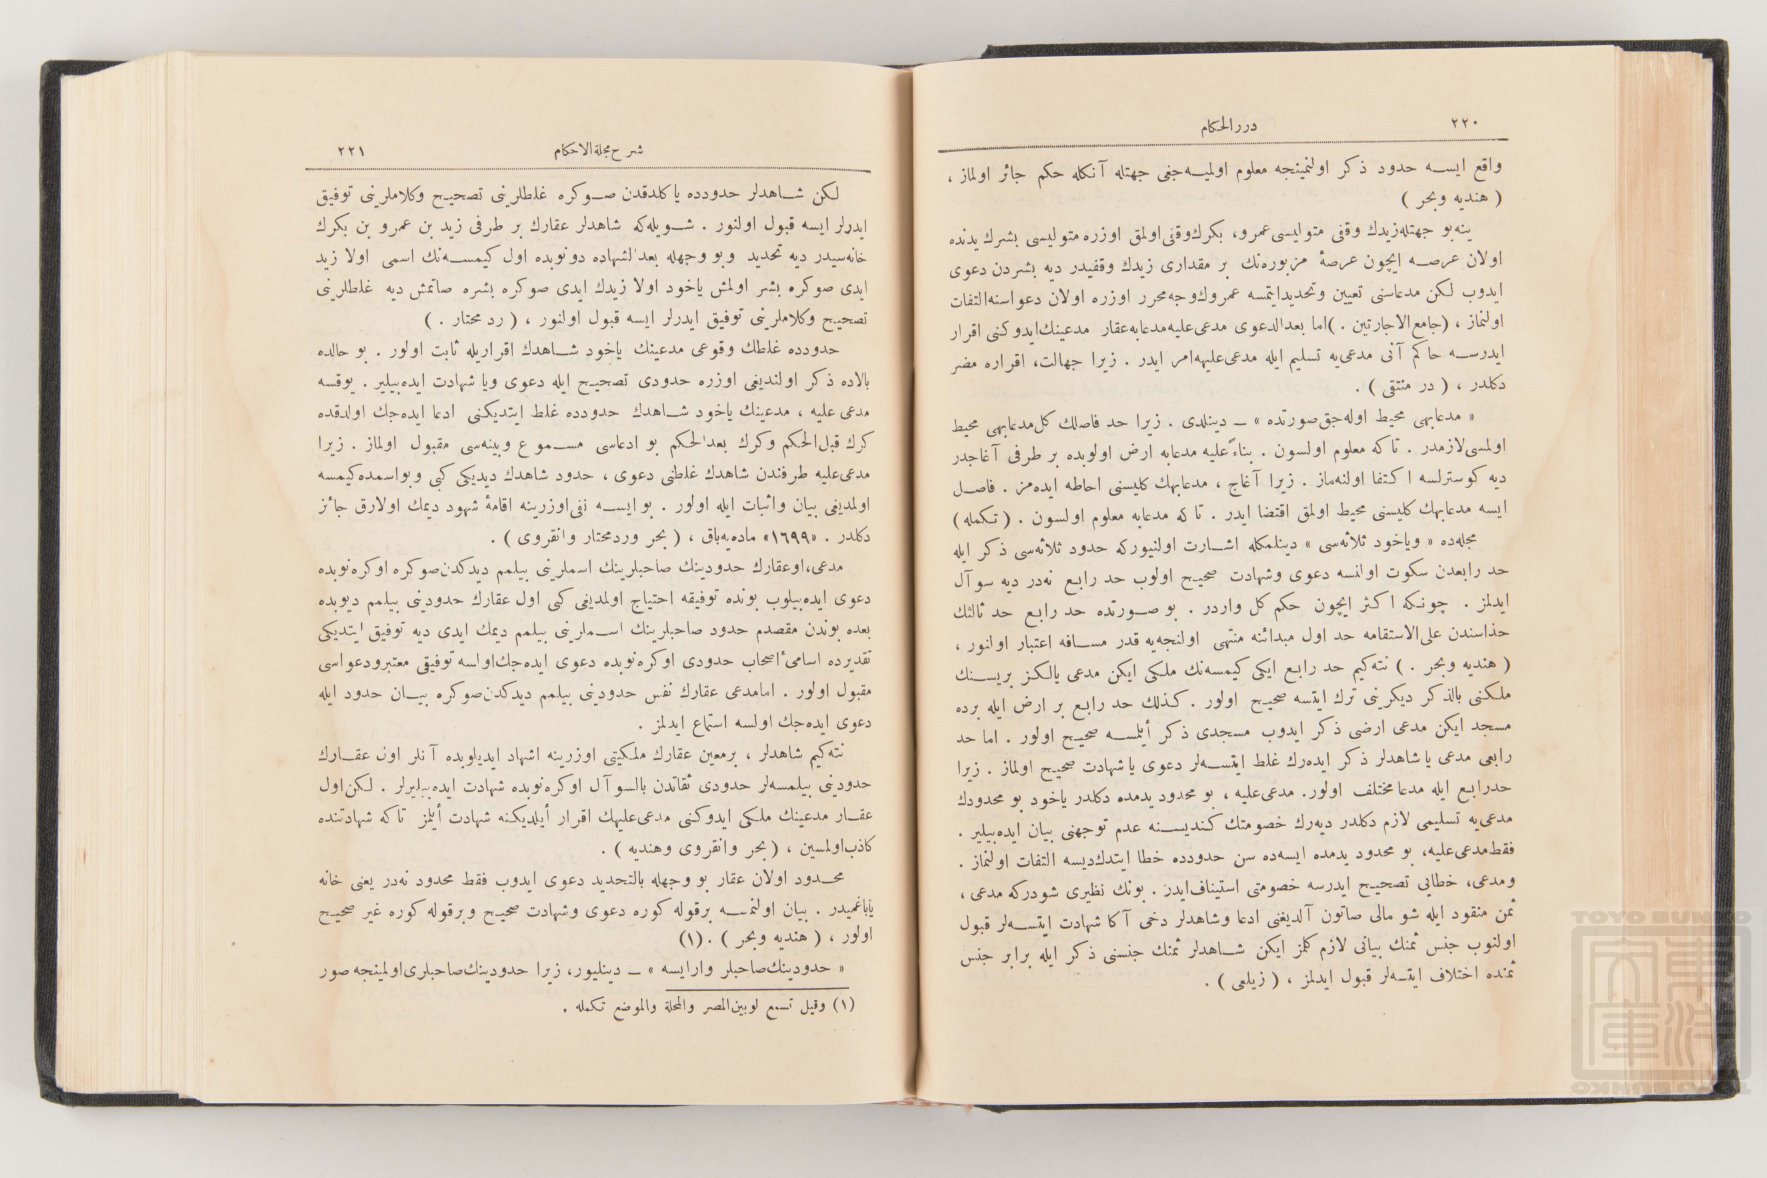 ٢٢٠
دررالحكام
واقع ايسه حدود ذكر اولنمينجه معلوم اولميه‌جغى جهتله آنكله حكم جائز اولماز ،
( هنديه وبحر )
ينه‌بو جهتله‌زيدك وقفى متوليسى‌عمرو، بكرك‌وقفى‌اولمق اوزره متوليسى بشرك يدنده
اولان عرصه ايچون عرصهٔ مزبوره‌نك بر مقدارى زيدك وقفيدر ديه بشردن دعوى
ايدوب لكن مدعاسنى تعيين وتحديدايتمسه عمروك‌وجه‌محرر اوزره اولان دعواسنه‌التفات
اولنماز ، (جامع‌الاجارتين .) اما بعدالدعوى مدعى‌عليه‌مدعابه‌عقار مدعينك‌ايدوكنى اقرار
ايدرسه حاكم آنى مدعى‌يه تسليم ايله مدعى‌عليهه‌امر ايدر . زيرا جهالت، اقراره مضر
دكلدر ، ( در منتقى ) .
« مدعابهى محيط اوله‌جق‌صورتده » ـ دينلدى . زيرا حد فاصلك كل‌مدعابهى محيط
اولمسى‌لازمدر . تاكه معلوم اولسون . بناءً‌عليه مدعابه ارض اولوبده بر طرفى آغاجدر
ديه كوسترلسه اكتفا اولنه‌ماز . زيرا آغاج ، مدعابهك كليسنى احاطه ايده‌مز . فاصل
ايسه مدعابهك كليسنى محيط اولمق اقتضا ايدر . تاكه مدعابه معلوم اولسون . ( تكمله )
مجله‌ده « وياخود ثلاثه‌سى » دينلمكله اشارت اولنيوركه حدود ثلاثه‌سى ذكر ايله
حد رابعدن سكوت اولنسه دعوى وشهادت صحيح اولوب حد رابع نه‌در ديه سوآل
ايدلمز . چونكه اكثر ايچون حكم كل واردر . بو صورتده حد رابع حد ثالثك
حذاسندن على‌الاستقامه حد اول مبدائنه منتهى اولنجه‌يه قدر مسافه اعتبار اولنور ،
( هنديه وبحر . ) نته‌كيم حد رابع ايكى كيمسه‌نك ملكى ايكن مدعى يالكز بريسنك
ملكنى بالذكر ديكرينى ترك ايتسه صحيح اولور . كذلك حد رابع بر ارض ايله برده
مسجد ايكن مدعى ارضى ذكر ايدوب مسجدى ذكر أيلمسه صحيح اولور . اما حد
رابعى مدعى يا شاهدلر ذكر ايده‌رك غلط ايتسه‌لر دعوى ياشهادت صحيح اولماز . زيرا
حدرابع ايله مدعا مختلف اولور. مدعى‌عليه ، بو محدود يدمده دكلدر ياخود بو محدودك
مدعى‌يه تسليمى لازم دكلدر ديه‌رك خصومتك كنديسنه عدم توجهنى بيان ايده‌بيلير .
فقط‌مدعى‌عليه، بو محدود يدمده ايسه‌ده سن حدودده خطا ايتدك‌ديسه التفات اولنماز .
ومدعى، خطايى تصحيح ايدرسه خصومتى استيناف‌ايدر . بونك نظيرى شودركه مدعى ،
ثمن منقود ايله شو مالى صاتون آلديغنى ادعا وشاهدلر دخى آكا شهادت ايتسه‌لر قبول
اولنوب جنس ثمنك بيانى لازم كلمز ايكن شاهدلر ثمنك جنسنى ذكر ايله برابر جنس
ثمنده اختلاف ايتسه‌لر قبول ايدلمز ، ( زيلعى ) .
شرح مجلة‌الاحكام
٢٢١
لكن شاهدلر حدودده ياكلدقدن صوكره غلطلرينى تصحيح وكلاملرينى توفيق
ايدرلر ايسه قبول اولنور . شويله‌كه شاهدلر عقارك بر طرفى زيد بن عمرو بن بكرك
خانه‌سيدر ديه تحديد وبو وجهله بعدالشهاده دونوبده اول كيمسه‌نك اسمى اولا زيد
ايدى صوكره بشر اولمش ياخود اولا زيدك ايدى صوكره بشره صاتمش ديه غلطلرينى
تصحيح وكلاملرينى توفيق ايدرلر ايسه قبول اولنور ، ( رد محتار . )
حدودده غلطك وقوعى مدعينك ياخود شاهدك اقراريله ثابت اولور . بو حالده
بالاده ذكر اولنديغى اوزره حدودى تصحيح ايله دعوى ويا شهادت ايده‌بيلير . يوقسه
مدعى عليه ، مدعينك ياخود شاهدك حدودده غلط ايتديكنى ادعا ايده‌جك اولدقده
كرك قبل‌الحكم وكرك بعدالحكم بو ادعاسى مسموع وبينه‌سى مقبول اولماز . زيرا
مدعى‌عليه طرفندن شاهدك غلطنى دعوى ، حدود شاهدك ديديكى كبى وبواسمده‌كيمسه
اولمديغى بيان واثبات ايله اولور . بو ايسه نفى‌اوزرينه اقامهٔ شهود ديمك اولارق جائز
دكلدر . «١٦٩٩» ماده‌يه‌باق ، ( بحر وردمحتار وانقروى ) .
مدعى،اوعقارك حدودينك صاحبلرينك اسملرينى بيلمم ديدكدن‌صوكره اوكره‌نوبده
دعوى ايده‌بيلوب بونده توفيقه احتياج اولمديغى كبى اول عقارك حدودينى بيلمم ديوبده
بعده بوندن مقصدم حدود صاحبلرينك اسملرينى بيلمم ديمك ايدى ديه توفيق ايتديكى
تقديرده اسامىٔ اصحاب حدودى اوكره‌نوبده دعوى ايده‌جك‌اولسه توفيقى معتبرودعواسى
مقبول اولور . امامدعى عقارك نفس حدودينى بيلمم ديدكدن‌صوكره بيان حدود ايله
دعوى ايده‌جك اولسه استماع ايدلمز .
نته‌كيم شاهدلر ، برمعين عقارك ملكيتى اوزرينه اشهاد ايديلوبده آنلر اول عقارك
حدودينى بيلمسه‌لر حدودى ثقاتدن بالسوآل اوكره‌نوبده شهادت ايده‌بيليرلر . لكن‌اول
عقار مدعينك ملكى ايدوكنى مدعى‌عليهك اقرار أيلديكنه شهادت أيلمز تاكه شهادتنده
كاذب‌اولمسين ، ( بحر وانقروى وهنديه ) .
محدود اولان عقار بو وجهله بالتحديد دعوى ايدوب فقط محدود نه‌در يعنى خانه
ياباغميدر . بيان اولنمسه برقوله كوره دعوى وشهادت صحيح وبرقوله كوره غير صحيح
اولور ، ( هنديه وبحر ) . (١)
« حدودينك‌صاحبلر وارايسه » ـ دينليور، زيرا حدودينك‌صاحبلرى‌اولمينجه صور
(١) وقيل تسمع لوبين‌المصر والمحلة والموضع تكمله .
TOYO BUNKO
東洋文庫
TOYO BUNKO